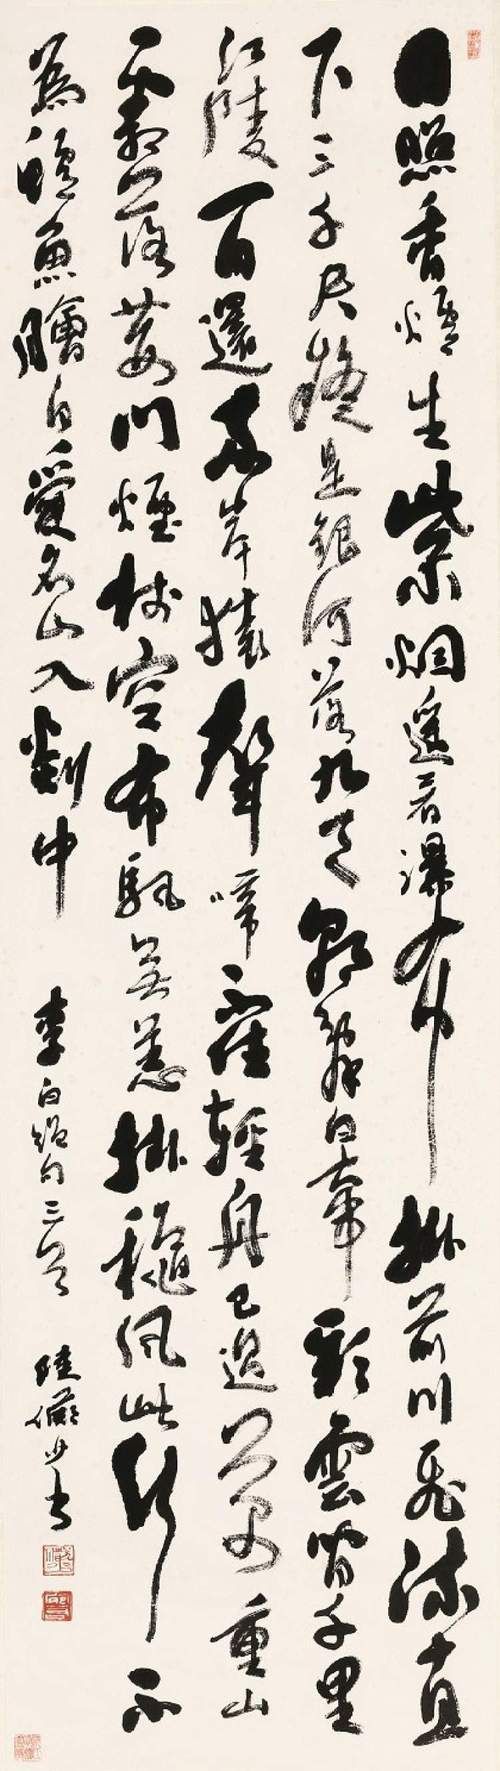 日照香爐生紫烟遙看瀑布掛前川飛流直
下三千尺疑是銀河落九天朝辭白帝彩雲間千里
江陵一日還两岸猿聲啼不住輕舟已過萬重山
霜落荊門煙樹空布帆無恙掛穐風此行不
為鱸魚膾自愛名山入剡中
李白絕句三首 陸儼少書